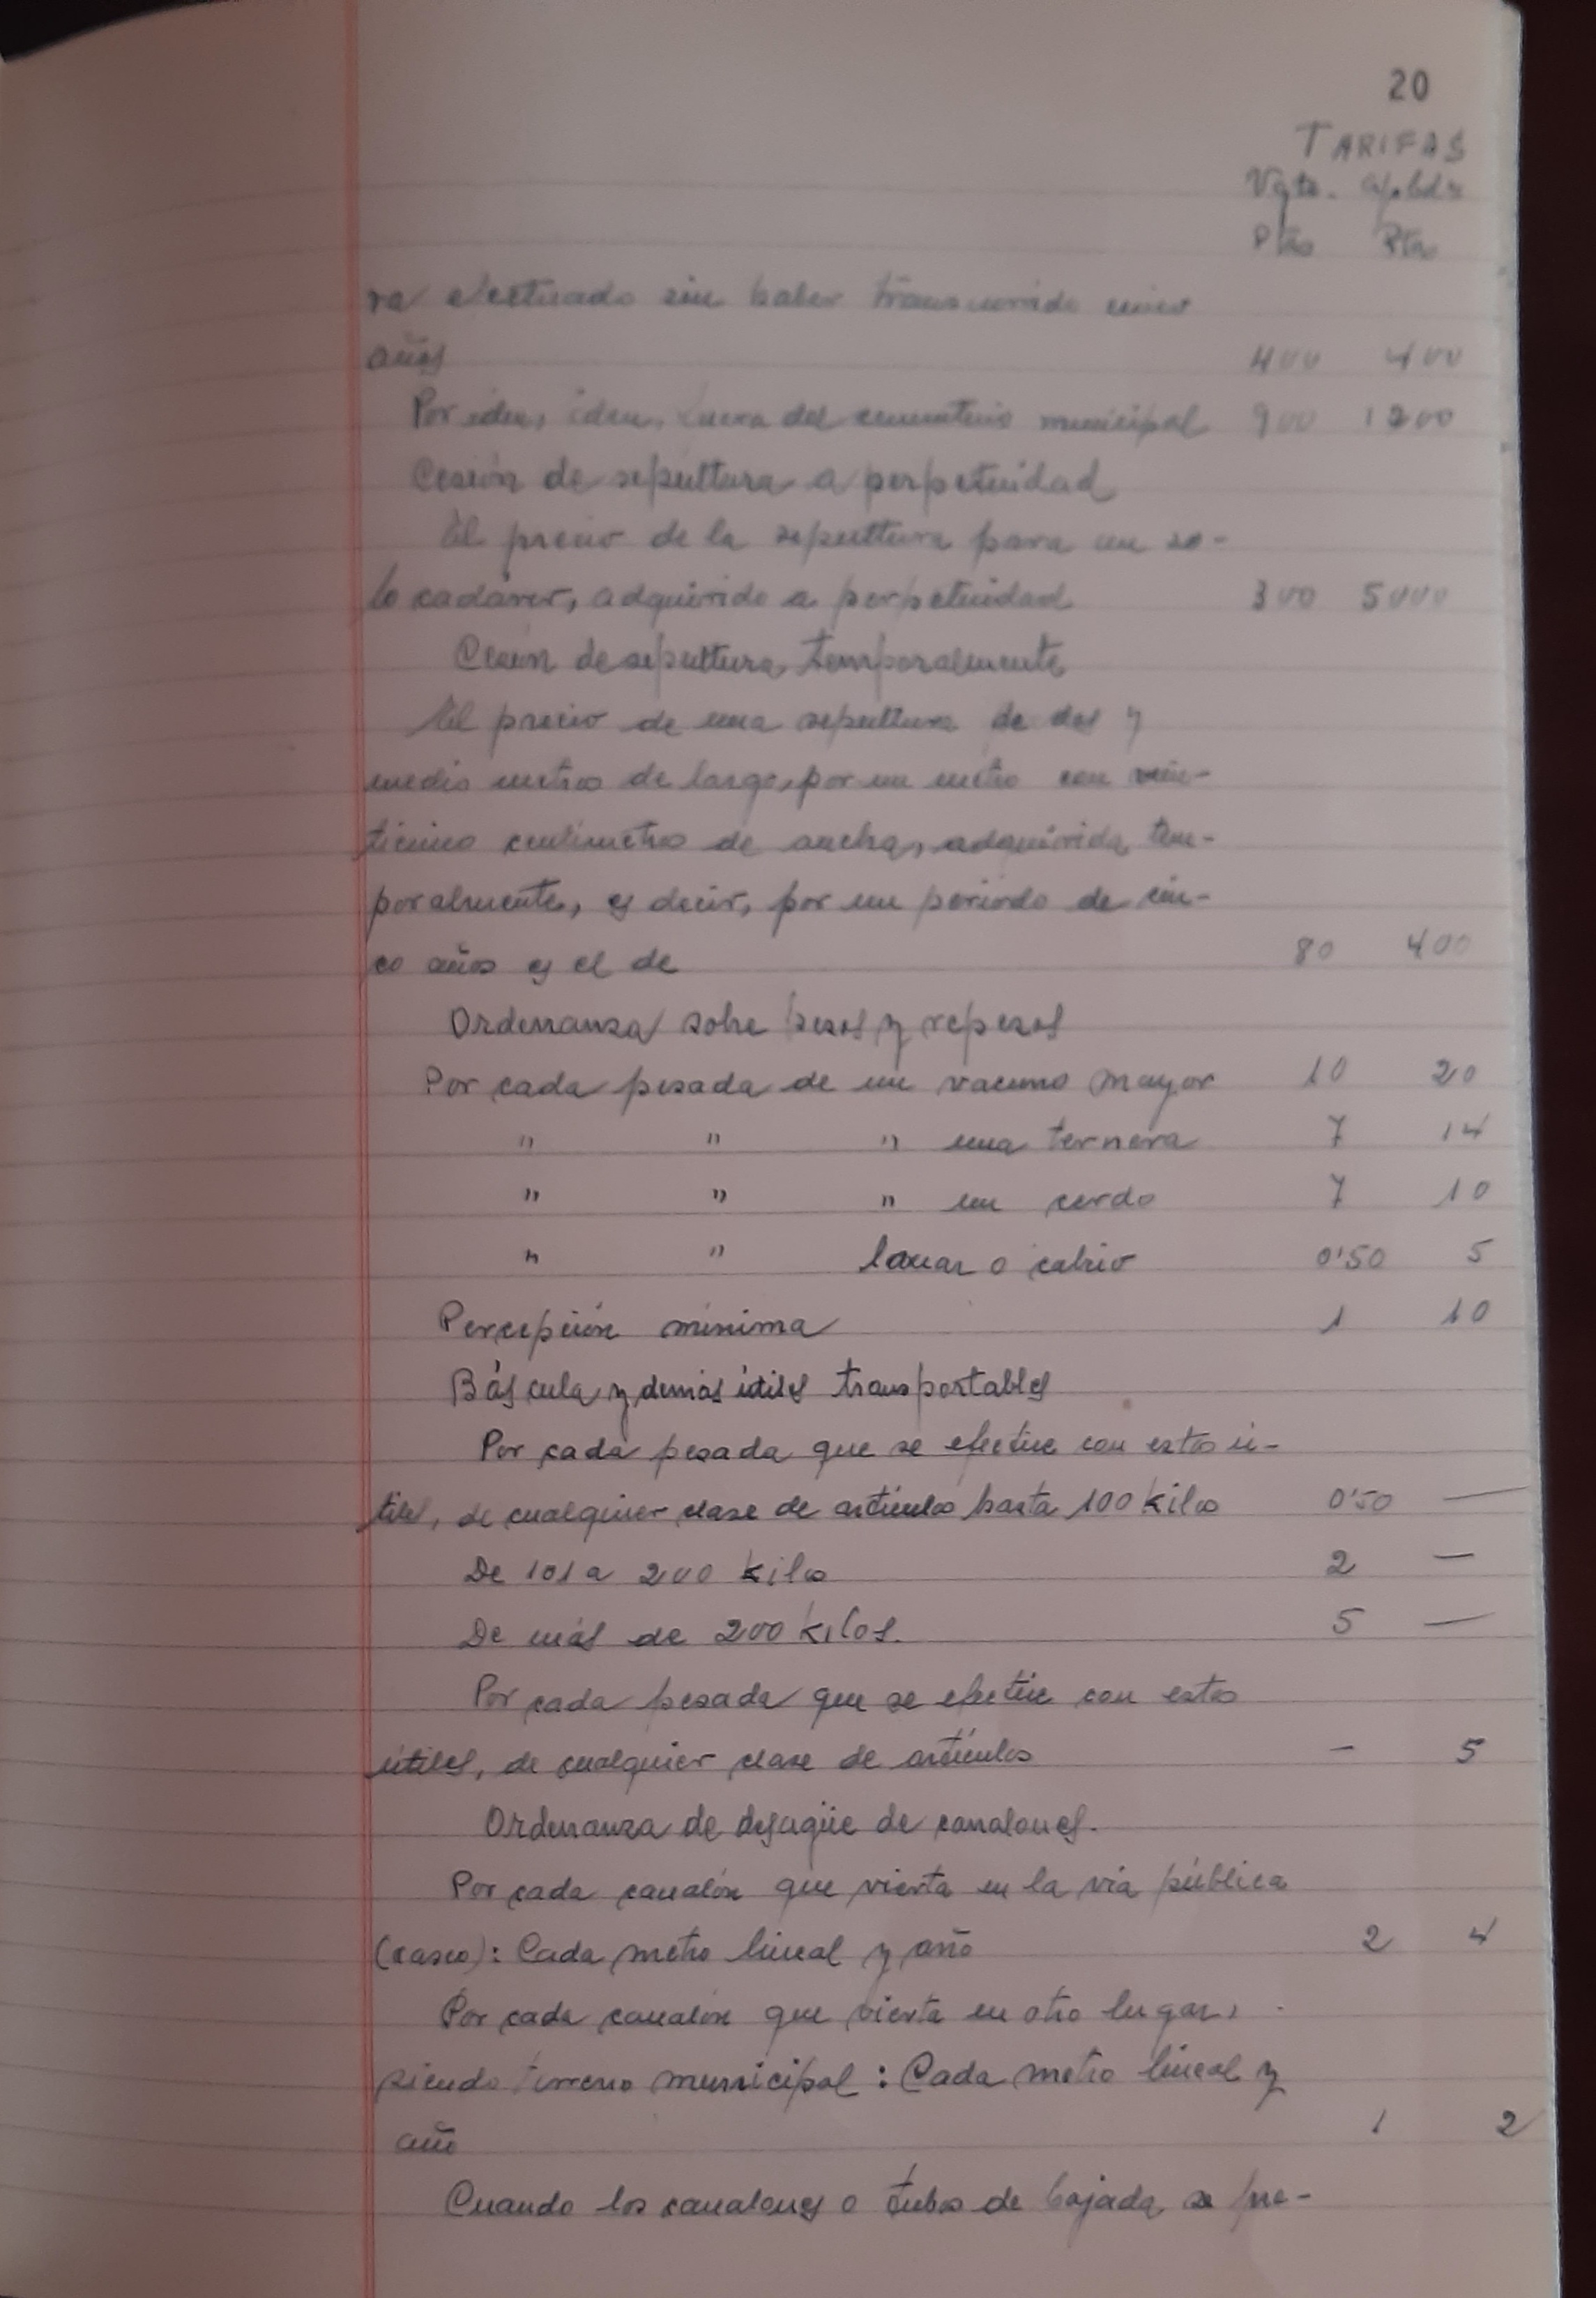 20
TARIFAS
Vgte. apbda
Ptas Ptas
ra efectuado sin haber transcurrido cinco
años 400 400
Por idem, idem, fuera del cementerio municipal 900 1200
Cesión de sepultura a perpetuidad
El precio de la sepultura para un so-
lo cadáver, adquirido a perpetuidad 300 5000
Cesión de sepultura temporalmente
El precio de una sepultura de dos y
medio metros de largo, por un metro con vein-
ticinco centímetros de ancha, adquirida tem-
poralmente, es decir, por un periodo de cin-
co años es el de 80 400
Ordenanza sobre pesos y repesos
Por cada pesada de un vacuno mayor 10 20
" " " una ternera 7 14
" " " un cerdo 7 10
" " lanar o cabrio 0'50 5
Percepción mínima 1 10
Báscula y demás útiles transportables
Por cada pesada que se efectúe con estos ú-
tiles, de cualquier clase de artículos hasta 100 kilos 0'50 —
De 101 a 200 kilos 2 —
De más de 200 kilos. 5 —
Por cada pesada que se efectúe con estos
útiles, de cualquier clase de artículos — 5
Ordenanza de desagüe de canalones.
Por cada canalón que vierta en la vía pública
(casco): Cada metro lineal y año 2 4
Por cada canalón que vierta en otro lugar,
siendo terreno municipal: Cada metro lineal y
año 1 2
Cuando los canalones o tubos de bajada se